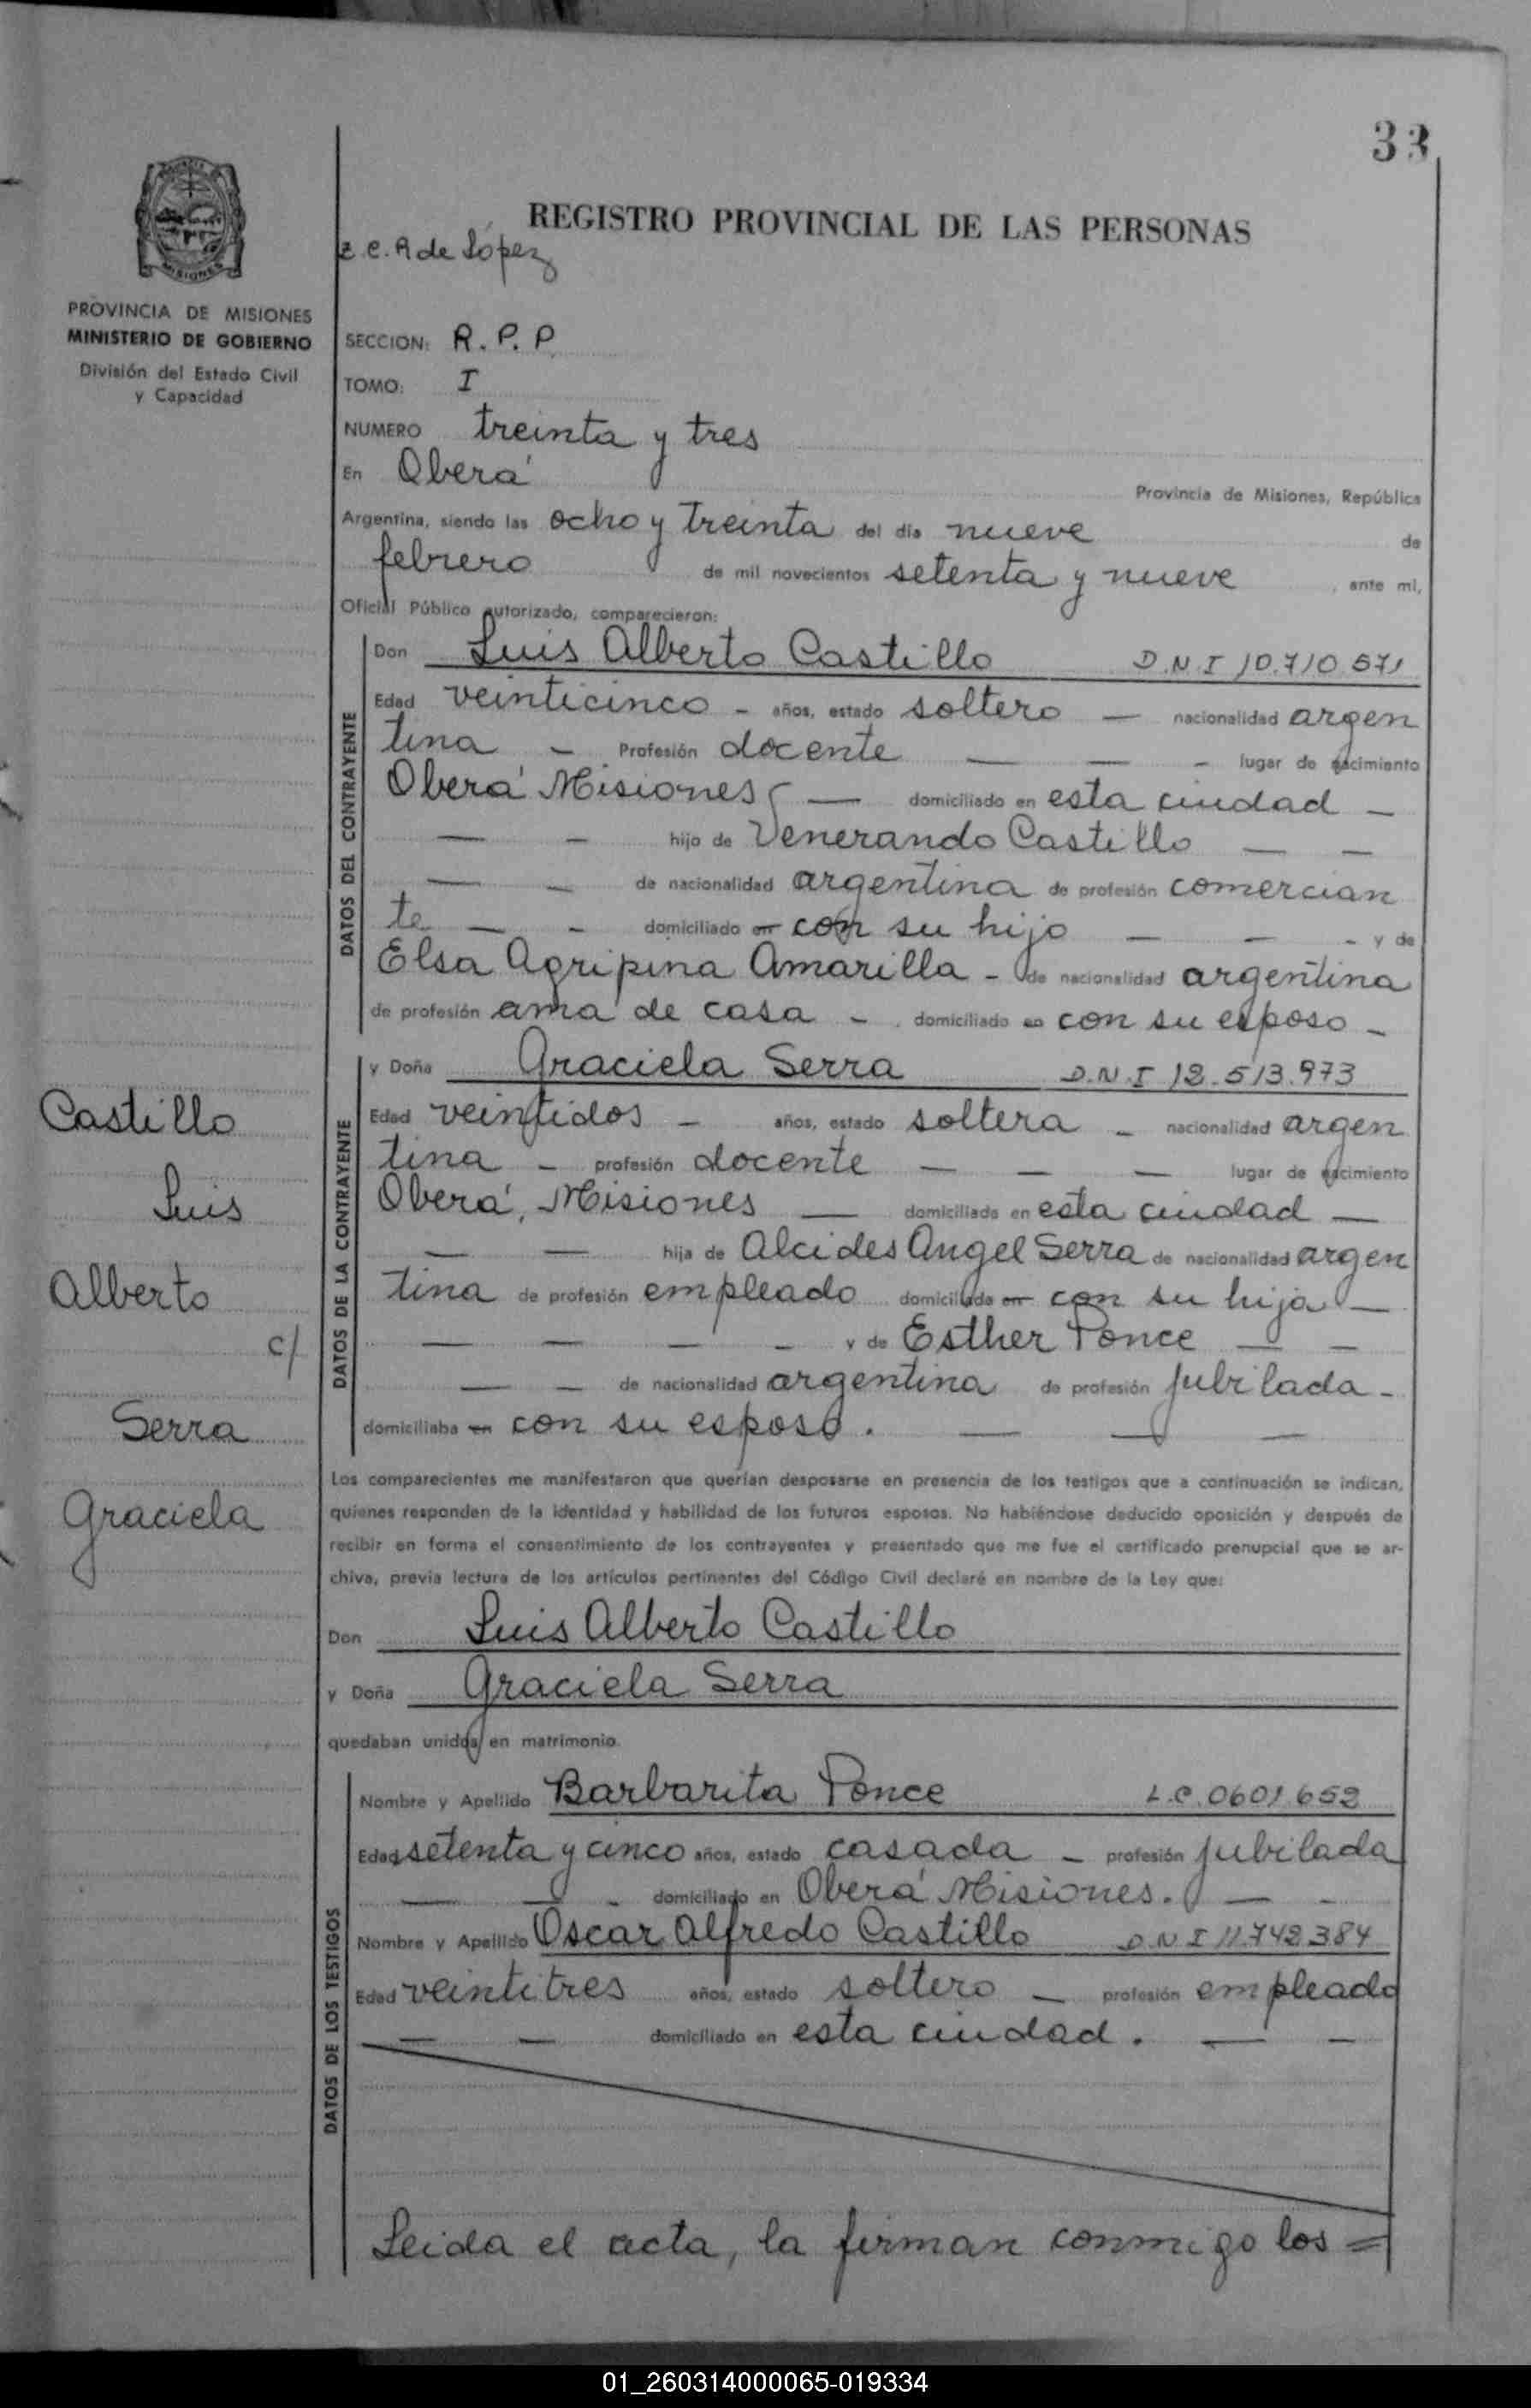 33
REGISTRO PROVINCIAL DE LAS PERSONAS
e.c. R de López
MISIONES
PROVINCIA DE MISIONES
MINISTERIO DE GOBIERNO
División del Estado Civil
y Capacidad
SECCION: R. P. P.
TOMO: I
NUMERO treinta y tres
En Oberá
Provincia de Misiones, República
Argentina, siendo las ocho y treinta del día nueve de
febrero de mil novecientos setenta y nueve, ante mí,
Oficial Público autorizado, comparecieron:
DATOS DEL CONTRAYENTE
Don Luis Alberto Castillo D.N.I 10.710.571
Edad veinticinco - años, estado soltero — nacionalidad argen
tina - Profesión docente — — - lugar de nacimiento
Oberá Misiones — domiciliado en esta ciudad —
— - hijo de Venerando Castillo — —
— - de nacionalidad argentina de profesión comercian
te — - domiciliado en con su hijo — — - y de
Elsa Agripina Amarilla - de nacionalidad argentina
de profesión ama de casa - domiciliado en con su esposo -
DATOS DE LA CONTRAYENTE
y Doña Graciela Serra D.N.I 12.513.973
Edad veintidos - años, estado soltera - nacionalidad argen
tina - profesión docente — — — lugar de nacimiento
Oberá, Misiones — domiciliada en esta ciudad —
— — hija de Alcides Angel Serra de nacionalidad argen
tina de profesión empleado domiciliado en con su hija —
— — — - y de Esther Ponce — —
— - de nacionalidad argentina de profesión jubilada -
domiciliaba en con su esposo. — — —
Castillo
Luis
Alberto
c/
Serra
Graciela
Los comparecientes me manifestaron que querían desposarse en presencia de los testigos que a continuación se indican,
quienes responden de la identidad y habilidad de los futuros esposos. No habiéndose deducido oposición y después de
recibir en forma el consentimiento de los contrayentes y presentado que me fue el certificado prenupcial que se ar-
chiva, previa lectura de los artículos pertinentes del Código Civil declaré en nombre de la Ley que:
Don Luis Alberto Castillo
y Doña Graciela Serra
quedaban unidos en matrimonio.
DATOS DE LOS TESTIGOS
Nombre y Apellido Barbarita Ponce L.C. 0601.652
Edad setenta y cinco años, estado casada - profesión jubilada
— — - domiciliado en Oberá Misiones. — -
Nombre y Apellido Oscar Alfredo Castillo D.N.I 11.742.384
Edad veintitres años, estado soltero — profesión empleado
— — domiciliado en esta ciudad. — -
Leida el acta, la firman conmigo los =
01_260314000065-019334